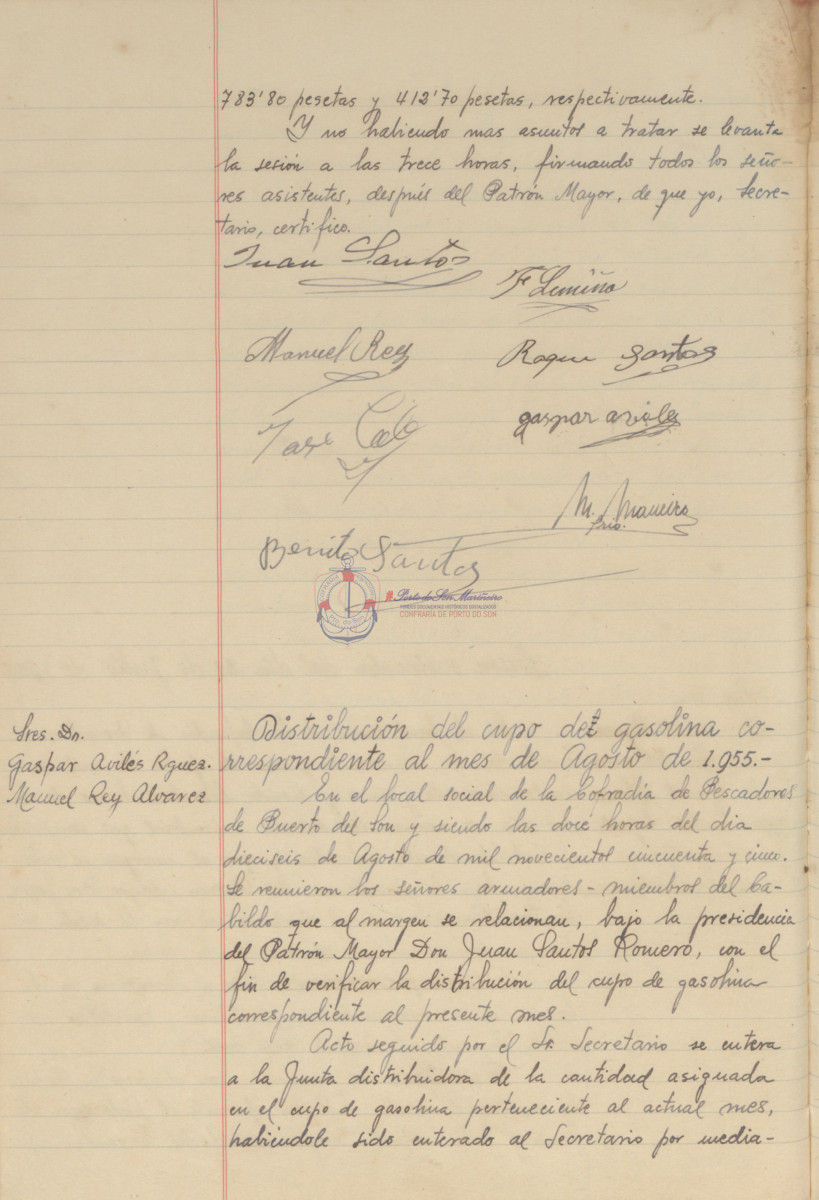 783'80 pesetas y 412'70 pesetas, respectivamente.
Y no habiendo mas asuntos a tratar se levanta
la sesión a las trece horas, firmando todos los seño-
res asistentes, después del Patrón Mayor, de que yo, Secre-
tario, certifico.
Juan Santos
F Lemiña
Manuel Rey
Roque Santos
José
gaspar aviles
M. Maneiro
Srio.
Benito Santos
Porto do Son Mariñeiro
FONDOS DOCUMENTAIS HISTÓRICOS DIXITALIZADOS
CONFRARÍA DE PORTO DO SON
Sres. Dn.
Gaspar Avilés Rguez.
Manuel Rey Alvarez
Distribución del cupo de gasolina co-
rrespondiente al mes de Agosto de 1.955.-
En el local social de la Cofradía de Pescadores
de Puerto del Son y siendo las doce horas del dia
dieciseis de Agosto de mil novecientos cincuenta y cinco.
Se reunieron los señores armadores - miembros del Ca-
bildo que al margen se relacionan, bajo la presidencia
del Patrón Mayor Don Juan Santos Romero, con el
fin de verificar la distribución del cupo de gasolina
correspondiente al presente mes.
Acto seguido por el Sr. Secretario se entera
a la Junta distribuidora de la cantidad asignada
en el cupo de gasolina perteneciente al actual mes,
habiéndole sido enterado al Secretario por media-